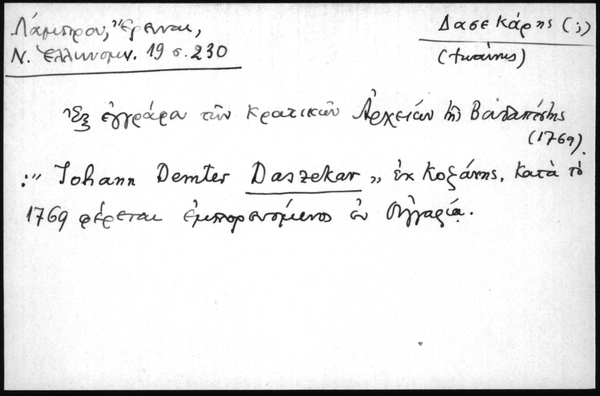 Λάμπρου, Ἔρευναι,
Ν. Ἑλληνομν. 19 σ. 230
Δασεκάρης (;)
(Ἰωάννης)
Ἐξ ἐγγράφου τῶν Κρατικῶν Ἀρχείων τῆς Βουδαπέστης
(1769).
:" Johann Demter Daszekar „ ἐκ Κοζάνης. κατὰ τὸ
1769 φέρεται ἐμπορευόμενος ἐν Οὑγγαρίᾳ.